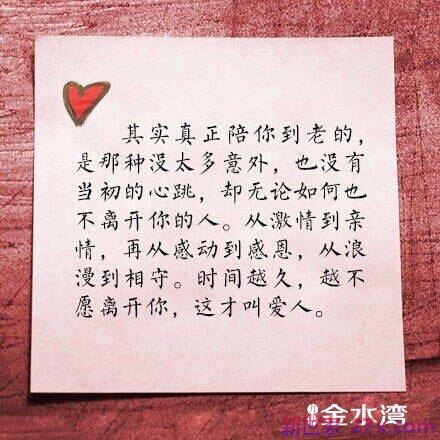 其实真正陪你到老的，
是那种没太多意外，也没有
当初的心跳，却无论如何也
不离开你的人。从激情到亲
情，再从感动到感恩，从浪
漫到相守。时间越久，越不
愿离开你，这才叫爱人。
金水湾